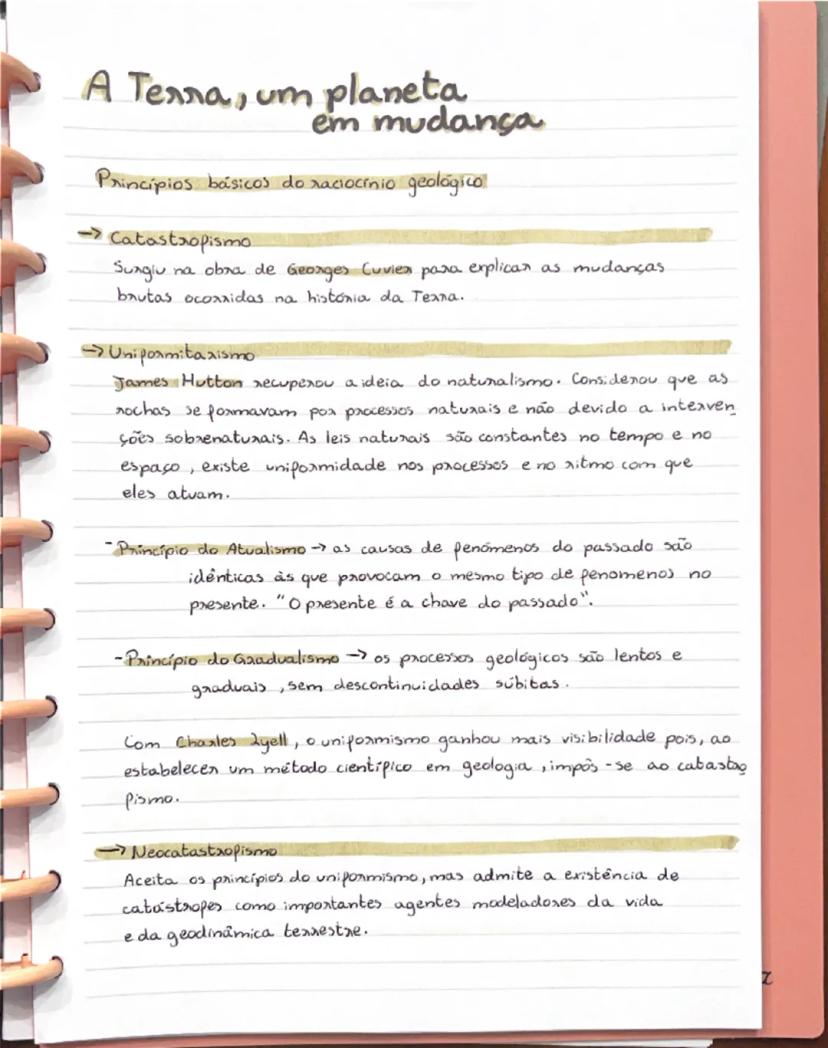 A Terra, um planeta
em mudança
Princípios básicos do raciocínio geológico
→ Catastrofismo
Surgiu na obra de Georges Cuvier para explicar as mudanças
brutas ocorridas na história da Terra.
→ Uniformitarismo
James Hutton recuperou a ideia do naturalismo. Considerou que as
rochas se formavam por processos naturais e não devido a interven
ções sobrenaturais. As leis naturais são constantes no tempo e no
espaço, existe uniformidade nos processos e no ritmo com que
eles atuam.
- Princípio do Atualismo → as causas de fenómenos do passado são
idênticas às que provocam o mesmo tipo de fenomenos no
presente. "O presente é a chave do passado".
- Princípio do Gradualismo → os processos geológicos são lentos e
graduais, sem descontinuidades súbitas.
Com Charles Lyell, o uniformismo ganhou mais visibilidade pois, ao
estabelecer um método científico em geologia, impôs-se ao catastro
fismo.
→ Neocatastrofismo
Aceita os princípios do uniformismo, mas admite a existência de
catástrofes como importantes agentes modeladores da vida
e da geodinâmica terrestre.